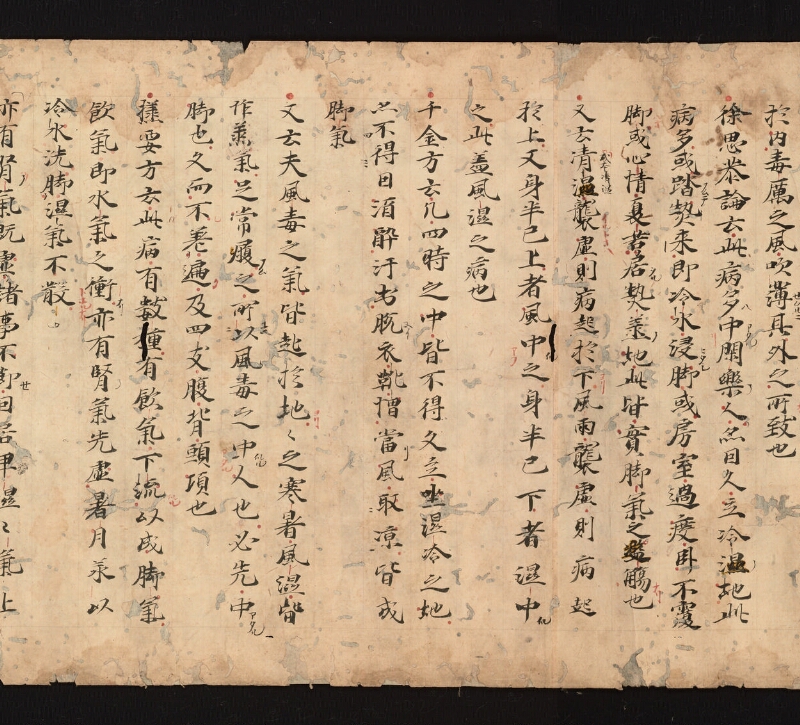 於内毒厲之風吹薄其外之所致也
徐思恭論云此病多中閑樂人亦因久立冷濕地此
病多或踏熱來即冷水浸脚或房室過疲卧不覆
脚或心情憂苦居熱蒸地此皆實脚氣之也
又云清濕襲虚則病起於下風雨襲虚則病起
於上又身半已上者風中之身半已下者濕中
之此盖風濕之病也
千金方云凡四時之中皆不得久立坐濕冷之地
亦不得因酒醉汗出脱衣靴當風取凉皆成
脚氣
又云夫風毒之氣皆起於地々之寒暑風濕皆
作蒸氣足常履之所以風毒之中人也必先中
脚也久而不差遍及四支腹背頭項也
要方云此病有數種有飲氣下流以成脚氣
飲氣即水氣之衝亦有腎氣先虚暑月承以
冷水洗脚濕氣不散
亦有腎氣既虚諸事不節因居卑濕々氣上